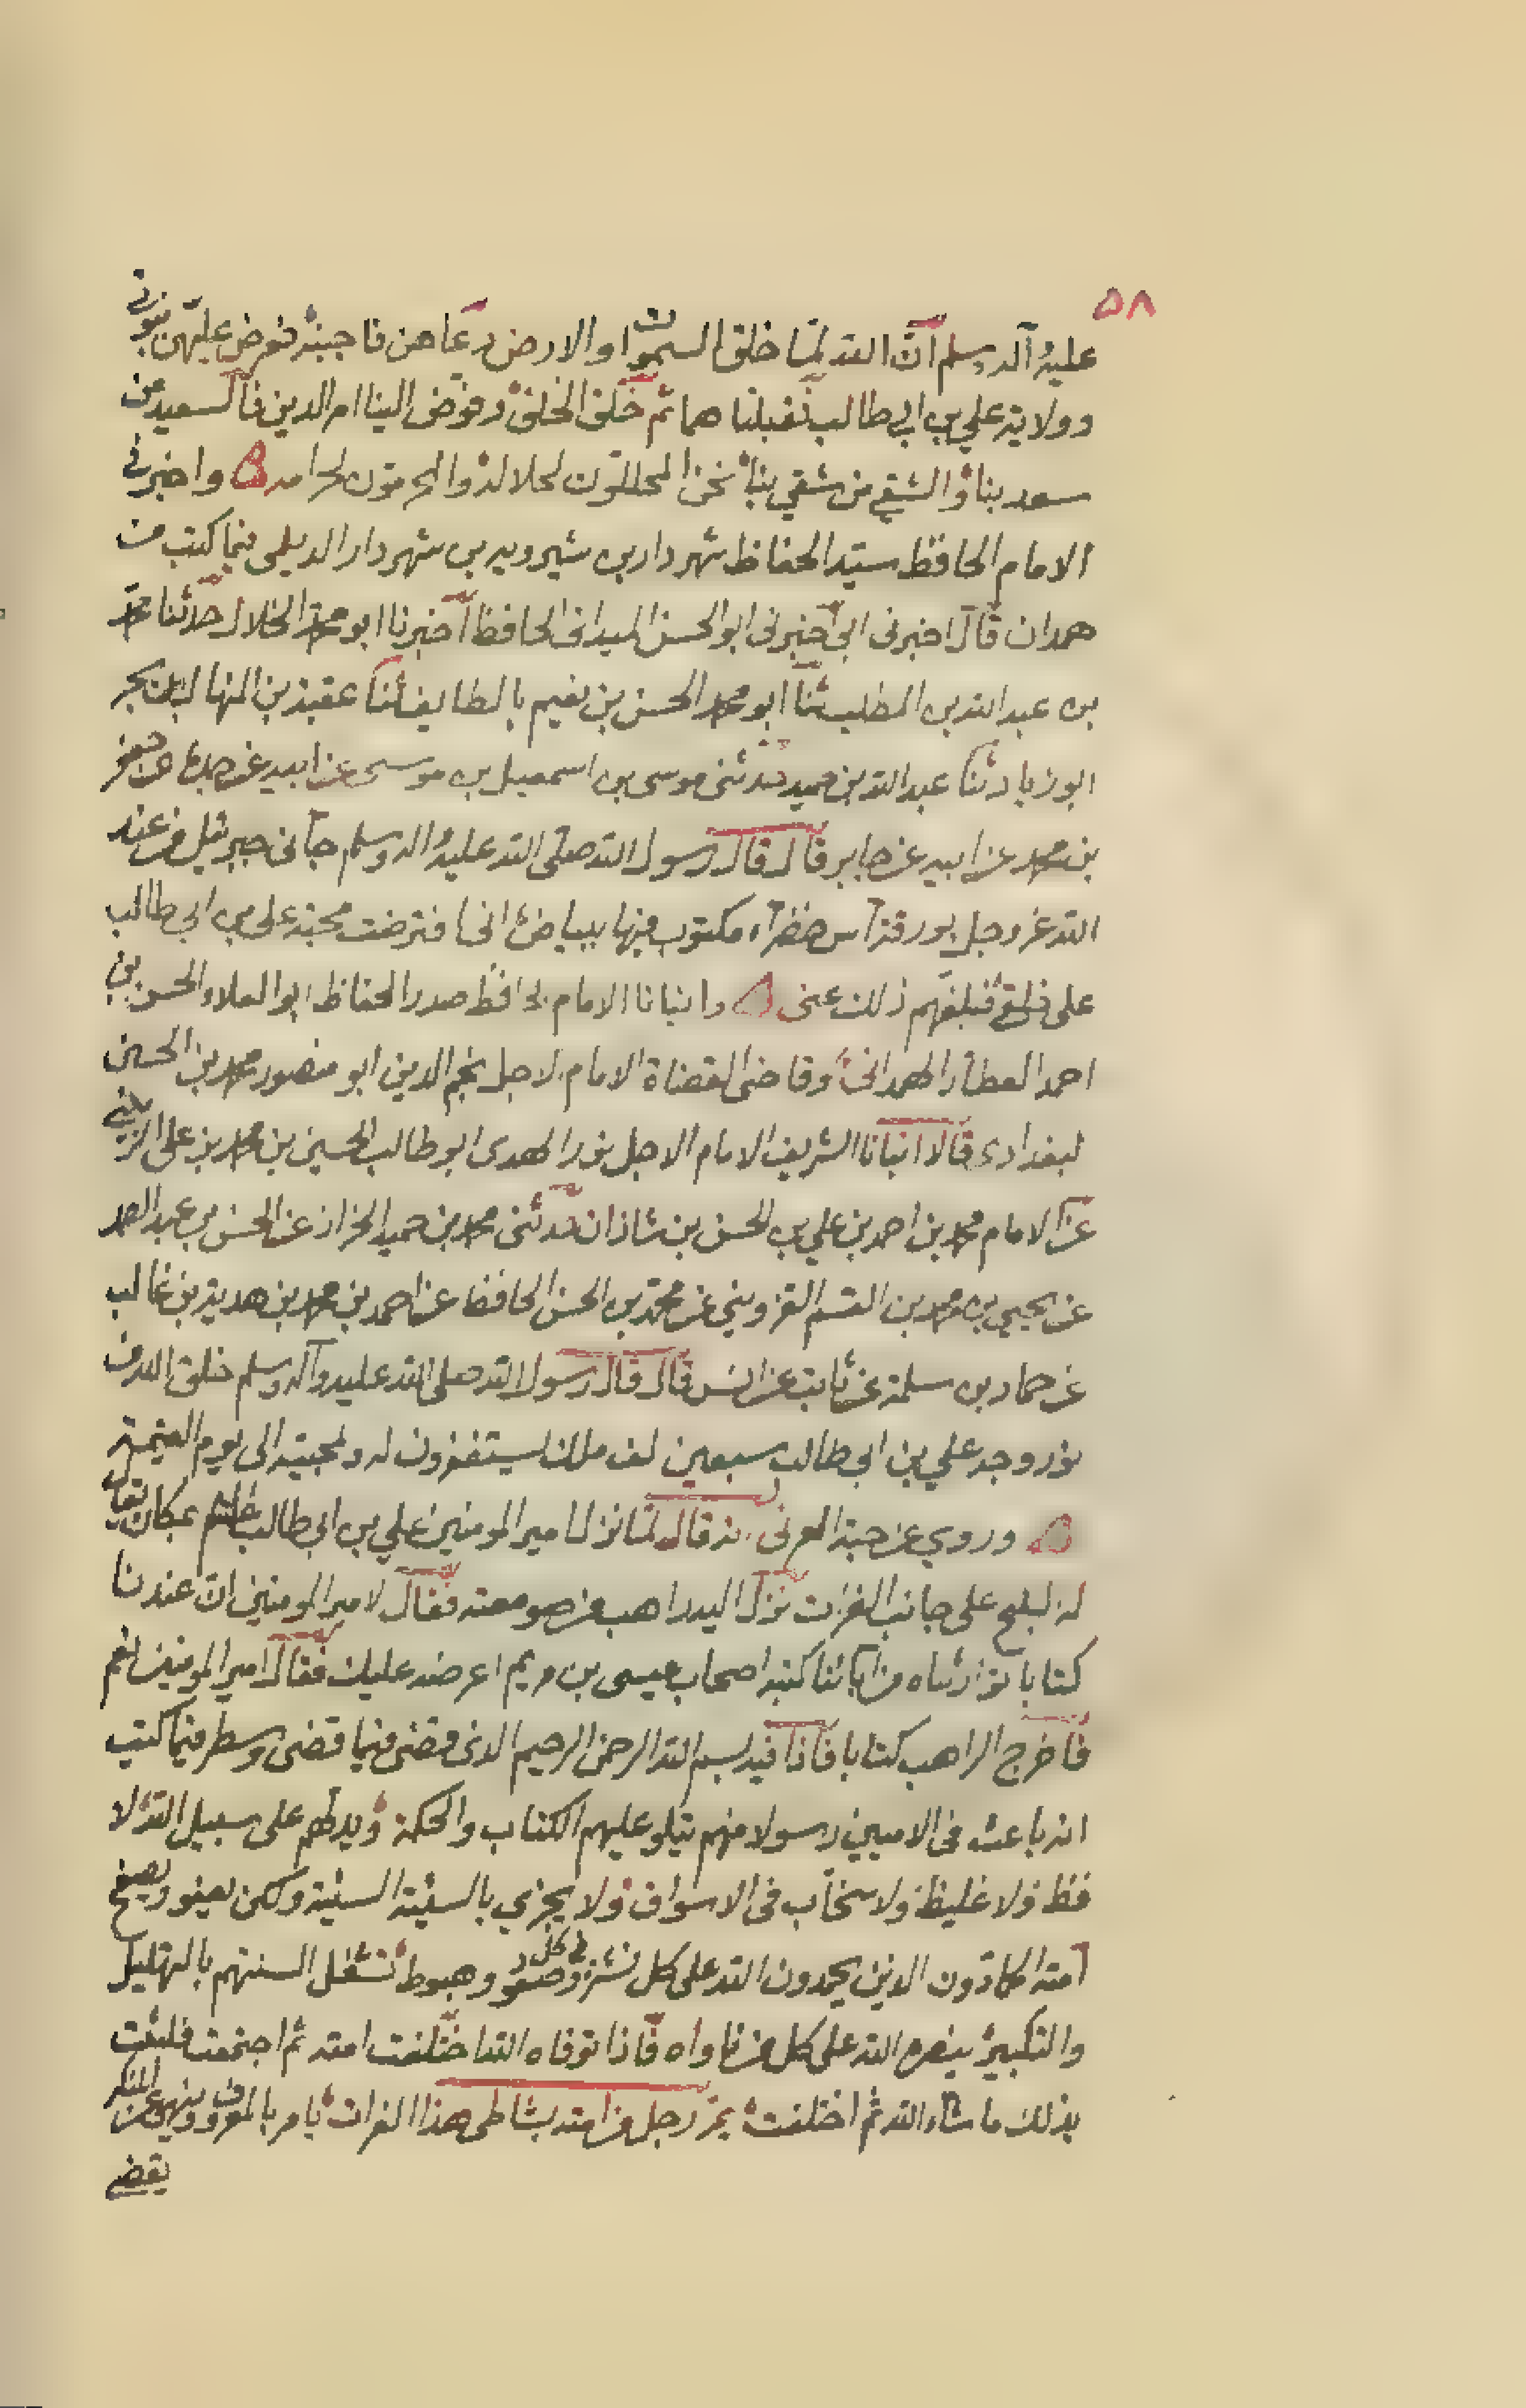 ٥٨
عليه وآله وسلم ان الله لما خلق السموات والارض دعاهن فاجبنه فعرض عليهن نبوتى
وولاية علي بن ابي طالب فقبلتاهما ثم خلق الخلق وفوض الينا امر الدين فالسعيد من
سعد بنا والشقي من شقي بنا نحن المحللون لحلاله والمحرمون لحرامه واخبرنى
الامام الحافظ سيد الحفاظ شهردار بن شيرويه بن شهردار الديلمى فيما كتب من
همدان قال اخبرنى ابى اخبرنى ابو الحسن الميدانى الحافظ اخبرنا ابو محمد الخلال حدثنا محمد
بن عبد الله بن المطلب ثنا ابو محمد الحسن بن نعيم بالطايف ثنا عقبة بن المنهال بن بحر
ابو زياد ثنا عبد الله بن حميد حدثنى موسى بن اسمعيل بن موسى عن ابيه عن جده عن جعفر
بن محمد عن ابيه عن جابر قال قال رسول الله صلى الله عليه واله وسلم جآنى جبرئيل من عند
الله عز وجل بورقة آس خضرآء مكتوب فيها ببياض انى افترضت محبة على بن ابي طالب
على خلقى فبلغهم ذلك عنى وانبانا الامام الحافظ صدر الحفاظ ابو العلاء الحسن بن
احمد العطار الهمدانى وقاضى القضاة الامام الاجل نجم الدين ابو منصور محمد بن الحسين
البغدادى قالا انبانا الشريف الامام الاجل نور الهدى ابو طالب الحسين بن محمد بن على الزينبى
عن الامام محمد بن احمد بن علي بن الحسن بن شاذان حدثنى محمد بن حميد الخزاز عن الحسن بن عبد الصمد
عن يحيى بن محمد بن القسم القزويني عن محمد بن الحسن الحافظ عن احمد بن محمد بن هدبة بن غالب
عن حماد بن سلمة عن ثابت عن انس قال قال رسول الله صلى الله عليه وآله وسلم خلق الله من
نور وجه علي بن ابي طالب سبعين الف ملك يستغفرون له ولمحبيه الى يوم القيمة
وروي عن حبة العرنى انه قال لما نزل امير المومنين علي بن ابي طالب بمكان يقال
له البليخ على جانب الفرات نزل اليه راهب من صومعته فقال لامير المومنين ان عندنا
كتابا توارثناه من آبائنا كتبه اصحاب عيسى بن مريم اعرضه عليك فقال امير المومنين نعم
فاخرج الراهب كتابا فاذا فيه بسم الله الرحمن الرحيم الذى قضى فيما قضى وسطر فيما كتب
انه باعث فى الاميين رسولا منهم يتلو عليهم الكتاب والحكمة ويدلهم على سبيل الله لا
فظ ولا غليظ ولا سخاب فى الاسواق ولا يجزي بالسيئة السيئة ولكن يعفو ويصفح
امته الحمادون الذين يحمدون الله على كل نشز وفي كل صعود وهبوط تشغل السنتهم بالتهليل
والتكبير ينصره الله على كل من ناواه فاذا توفاه الله اختلفت امته ثم اجتمعت فلبثت
بذلك ما شاء الله ثم اختلفت يمر رجل من امته بشاطى هذا الفرات يامر بالمعروف وينهى عن المنكر
يقضى